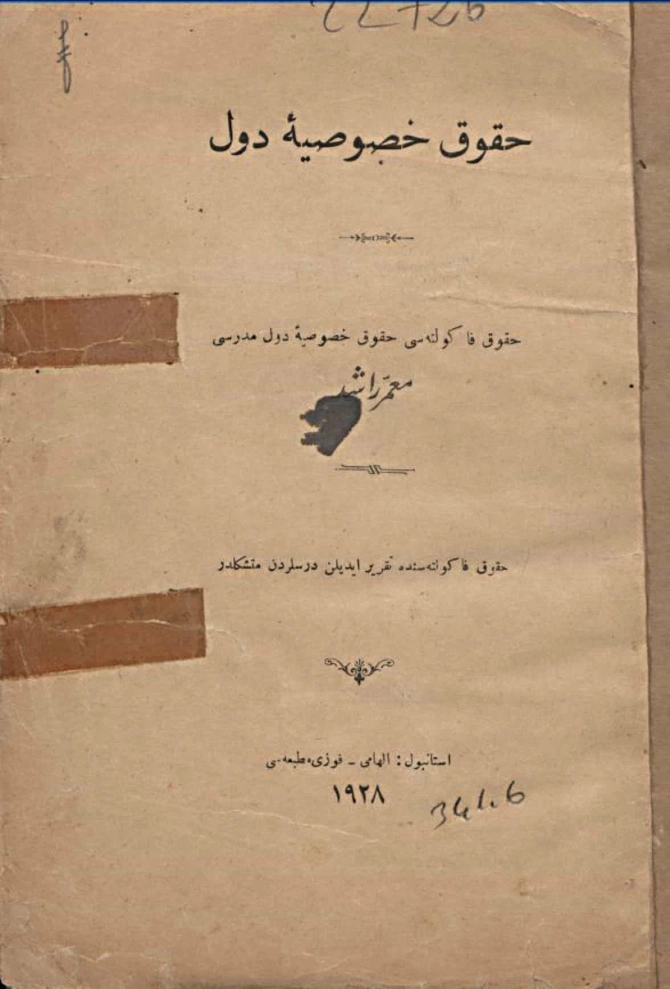 22726
حقوق خصوصیهٔ دول
حقوق فاکولته‌سی حقوق خصوصیهٔ دول مدرسی
معمّر راشد
حقوق فاکولته‌سنده تقریر ایدیلن درسلردن متشکلدر
استانبول : الهامی ـ فوزی مطبعه‌سی
۱۹۲۸
341.6